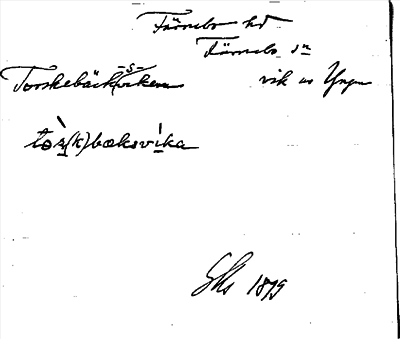 Färnebo hd
Färnebo sn
Torskebäck-s-viken vik av Yngen
tòș(k)bæksvìka
1879